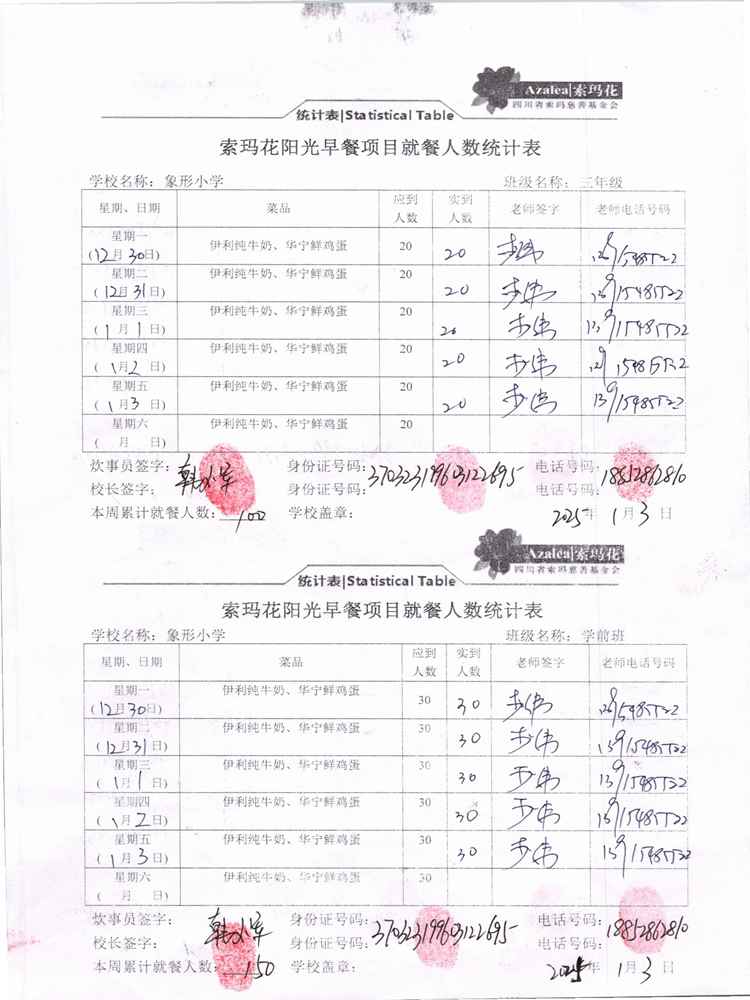 Azalea|索玛花
四川省索玛慈善基金会
统计表|Statistical Table
索玛花阳光早餐项目就餐人数统计表
学校名称：象形小学 班级名称：三年级
星期、日期 菜品 应到人数 实到人数 老师签字 老师电话号码
星期一 (12月30日) 伊利纯牛奶、华宁鲜鸡蛋 20 20
星期二 (12月31日) 伊利纯牛奶、华宁鲜鸡蛋 20 20
星期三 (1月1日) 伊利纯牛奶、华宁鲜鸡蛋 20 20
星期四 (1月2日) 伊利纯牛奶、华宁鲜鸡蛋 20 20
星期五 (1月3日) 伊利纯牛奶、华宁鲜鸡蛋 20 20
星期六 ( 月 日) 伊利纯牛奶、华宁鲜鸡蛋 20
炊事员签字： 身份证号码： 电话号码：
校长签字： 身份证号码：370323199603122695 电话号码：18852862810
本周累计就餐人数：100 学校盖章： 2025年1月3日
Azalea|索玛花
四川省索玛慈善基金会
统计表|Statistical Table
索玛花阳光早餐项目就餐人数统计表
学校名称：象形小学 班级名称：学前班
星期、日期 菜品 应到人数 实到人数 老师签字 老师电话号码
星期一 (12月30日) 伊利纯牛奶、华宁鲜鸡蛋 30 30
星期二 (12月31日) 伊利纯牛奶、华宁鲜鸡蛋 30 30
星期三 (1月1日) 伊利纯牛奶、华宁鲜鸡蛋 30 30
星期四 (1月2日) 伊利纯牛奶、华宁鲜鸡蛋 30 30
星期五 (1月3日) 伊利纯牛奶、华宁鲜鸡蛋 30 30
星期六 ( 月 日) 伊利纯牛奶、华宁鲜鸡蛋 30
炊事员签字： 身份证号码： 电话号码：
校长签字： 身份证号码：370323199603122695 电话号码：18852862810
本周累计就餐人数：150 学校盖章： 2025年1月3日